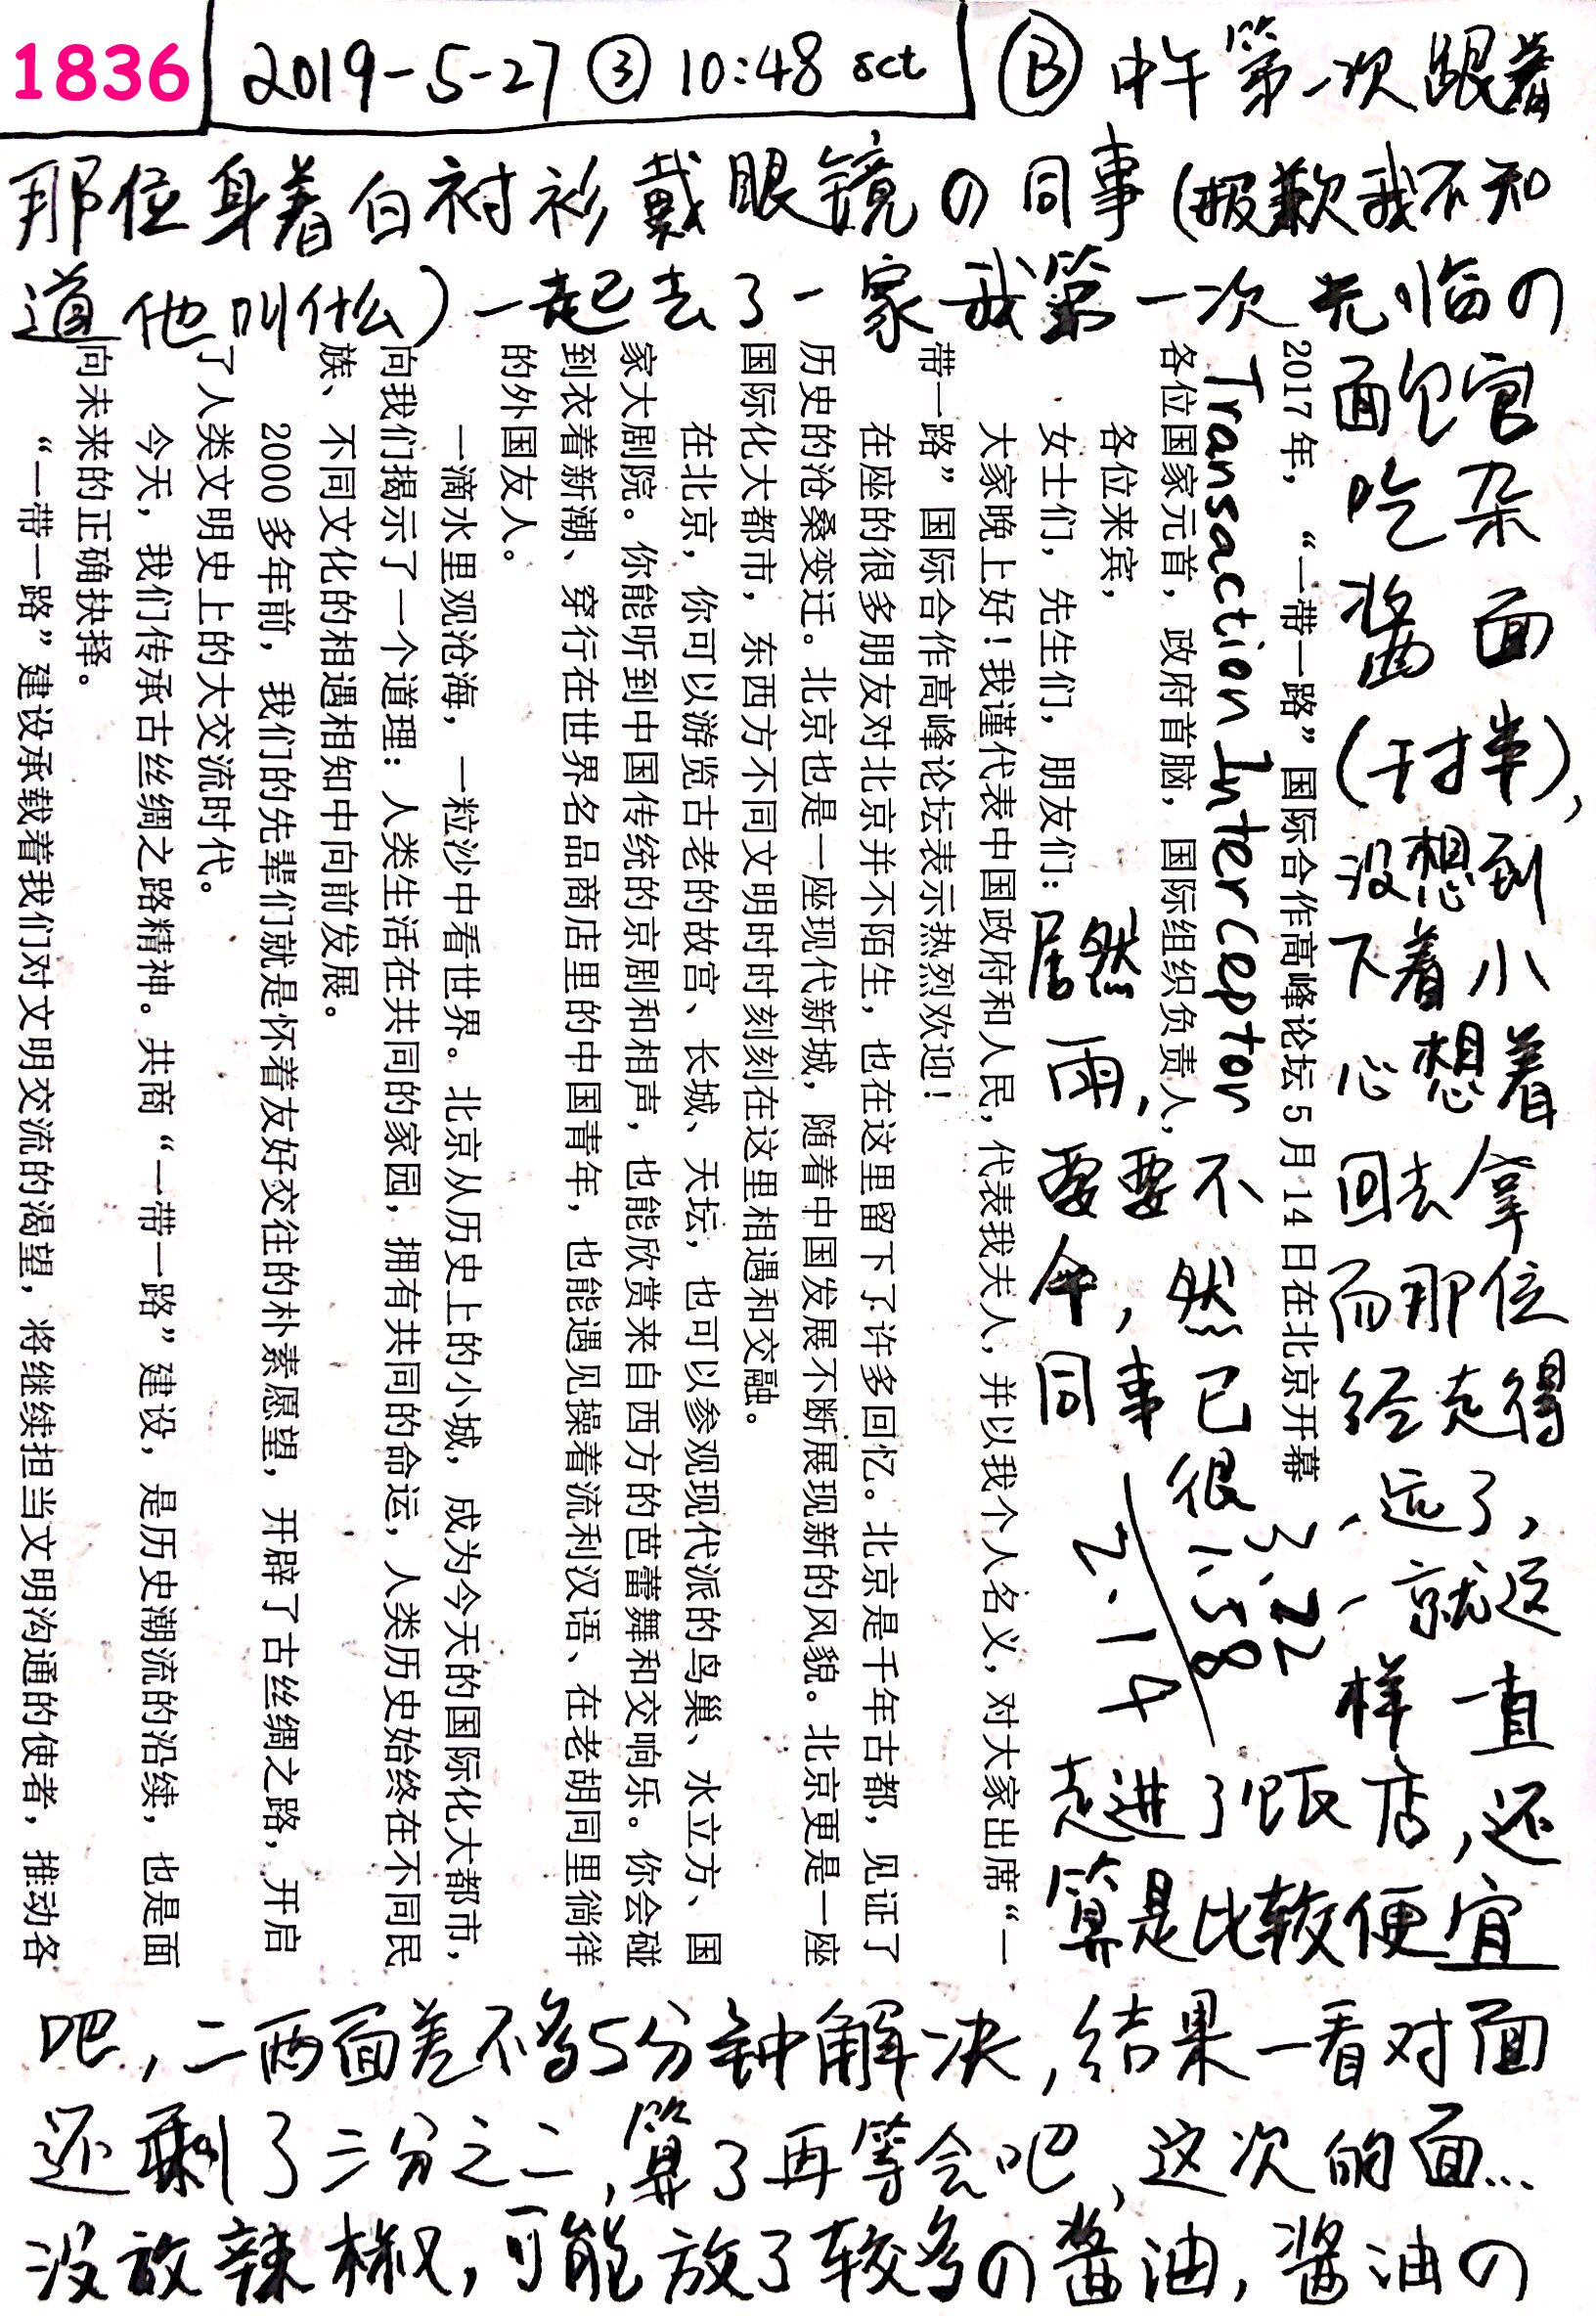 1836
2019-5-27 ③ 10:48 sct
Ⓑ 中午第一次跟着
那位身着白衬衫戴眼镜の同事(抱歉我不知
道他叫什么)一起去了一家我第一次光临の
面馆
吃杂
酱面
(干拌),
没想到
居然下着小
雨,心想着
要要不回去拿
伞,然而那位
同事已经走得
很远了,
就这
样一直
走进了饭店,还
算是比较便宜
吧,二两面差不多5分钟解决,结果一看对面
还剩了三分之二,算了再等会吧,这次的面...
没放辣椒,可能放了较多の酱油,酱油の
Transaction Interceptor
3.22
1.58
2.14
2017年，“一带一路”国际合作高峰论坛5月14日在北京开幕
各位国家元首，政府首脑，国际组织负责人，
各位来宾，
女士们，先生们，朋友们：
大家晚上好！我谨代表中国政府和人民，代表我夫人，并以我个人名义，对大家出席“一
带一路”国际合作高峰论坛表示热烈欢迎！
在座的很多朋友对北京并不陌生，也在这里留下了许多回忆。北京是千年古都，见证了
历史的沧桑变迁。北京也是一座现代新城，随着中国发展不断展现新的风貌。北京更是一座
国际化大都市，东西方不同文明时时刻刻在这里相遇和交融。
在北京，你可以游览古老的故宫、长城、天坛，也可以参观现代派的鸟巢、水立方、国
家大剧院。你能听到中国传统的京剧和相声，也能欣赏来自西方的芭蕾舞和交响乐。你会碰
到衣着新潮、穿行在世界名品商店里的中国青年，也能遇见操着流利汉语、在老胡同里徜徉
的外国友人。
一滴水里观沧海，一粒沙中看世界。北京从历史上的小城，成为今天的国际化大都市，
向我们揭示了一个道理：人类生活在共同的家园，拥有共同的命运，人类历史始终在不同民
族、不同文化的相遇相知中向前发展。
2000多年前，我们的先辈们就是怀着友好交往的朴素愿望，开辟了古丝绸之路，开启
了人类文明史上的大交流时代。
今天，我们传承古丝绸之路精神。共商“一带一路”建设，是历史潮流的沿续，也是面
向未来的正确抉择。
“一带一路”建设承载着我们对文明交流的渴望，将继续担当文明沟通的使者，推动各